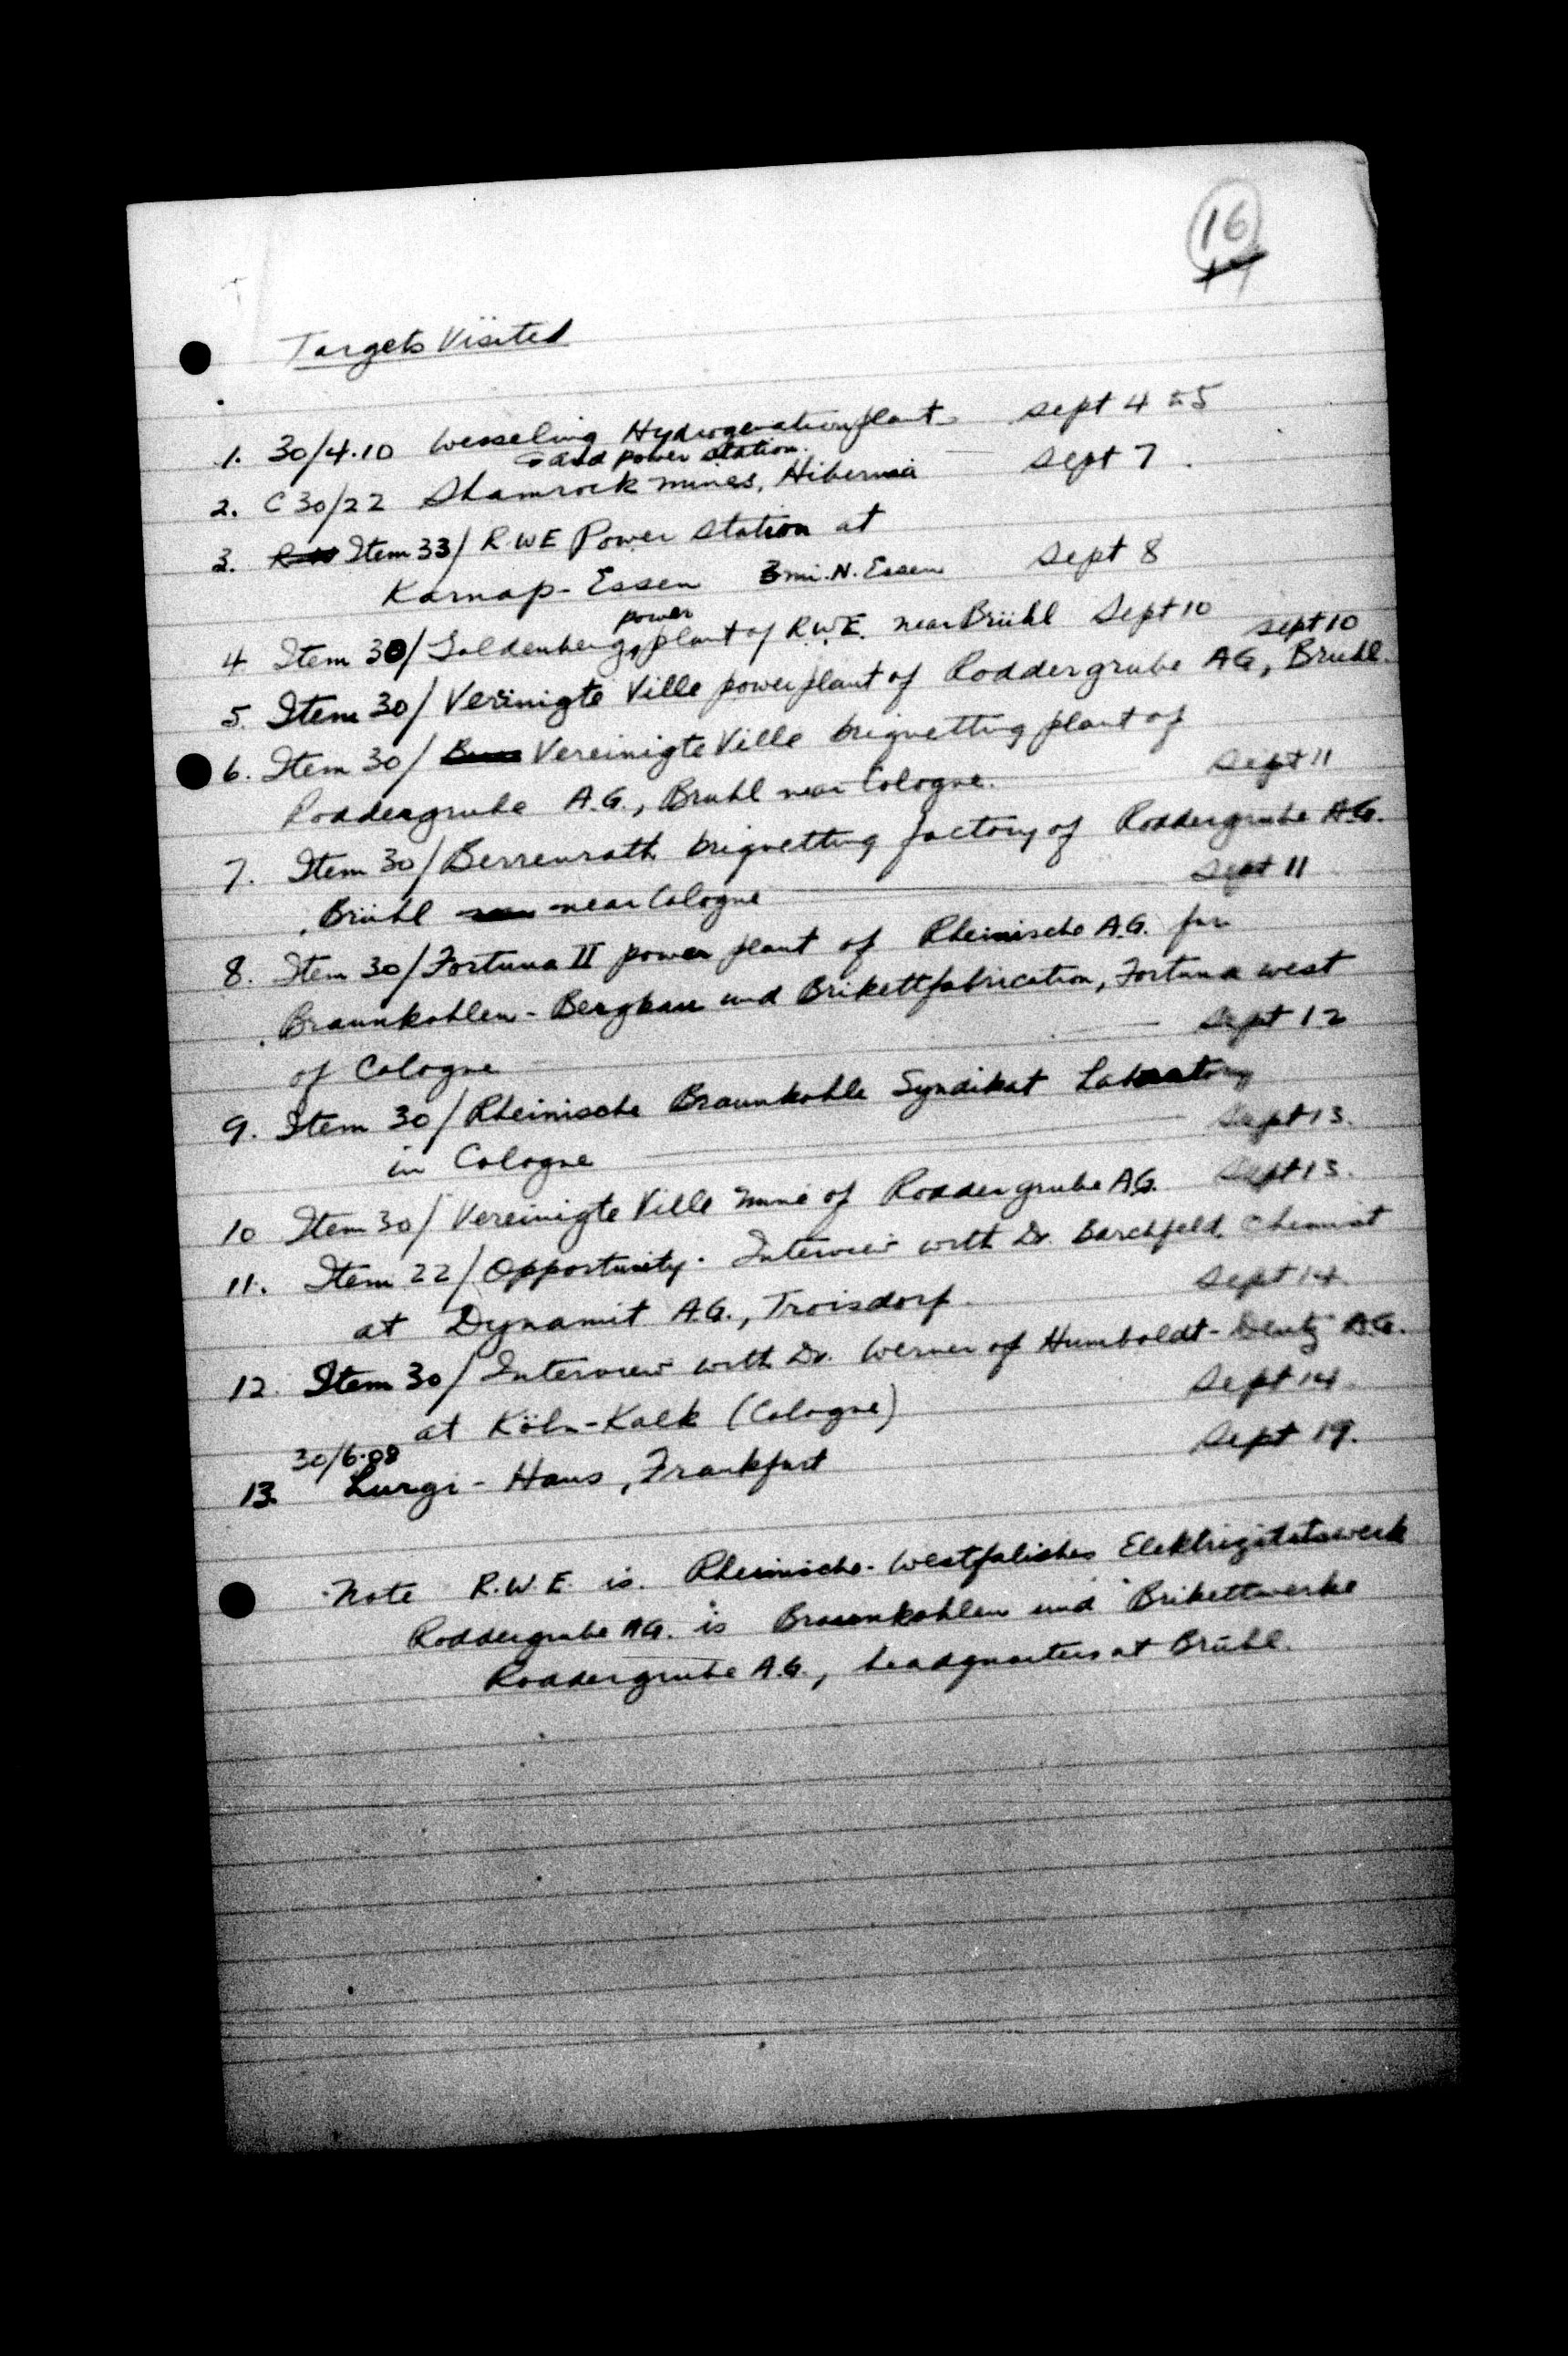 16
17
Targets Visited
1. 30/4.10 Wesseling Hydrogenation plant sept 4 & 5
and power station.
2. C 30/22 Shamrock mines, Hibernia sept 7
3. Item 33/ R.W.E Power station at
Karnap-Essen 3 mi. N. Essen sept 8
power
4 Item 30/ Goldenberg plant of R.W.E. near Brühl Sept 10
sept 10
5. Item 30/ Vereinigte Ville power plant of Roddergrube AG, Bruhl.
6. Item 30/ Vereinigte Ville briquetting plant of
Roddergrube A.G., Bruhl near Cologne. sept 11
7. Item 30/ Berrenrath briquetting factory of Roddergrube A.G.
Brühl near Cologne sept 11
8. Item 30/ Fortuna II power plant of Rheinische A.G. fur
Braunkohlen-Bergbau und Brikettfabrication, Fortuna west
of Cologne sept 12
9. Item 30/ Rheinische Braunkohle Syndikat Laboratory
in Cologne sept 13.
10 Item 30/ Vereinigte Ville mine of Roddergrube A.G. sept 13.
11. Item 22/ Opportunity. Interview with Dr. Barchfeld, Chemist
at Dynamit A.G., Troisdorf. sept 14.
12. Item 30/ Interview with Dr. Werner of Humboldt-Deutz A.G.
at Köln-Kalk (Cologne) sept 14.
30/6.08
13. Lurgi-Haus, Frankfurt sept 19.
Note R.W.E. is Rheinische-Westfalisches Elektrizitatswerk
Roddergrube AG. is Braunkohlen und Brikettwerke
Roddergrube A.G., headquarters at Brühl.